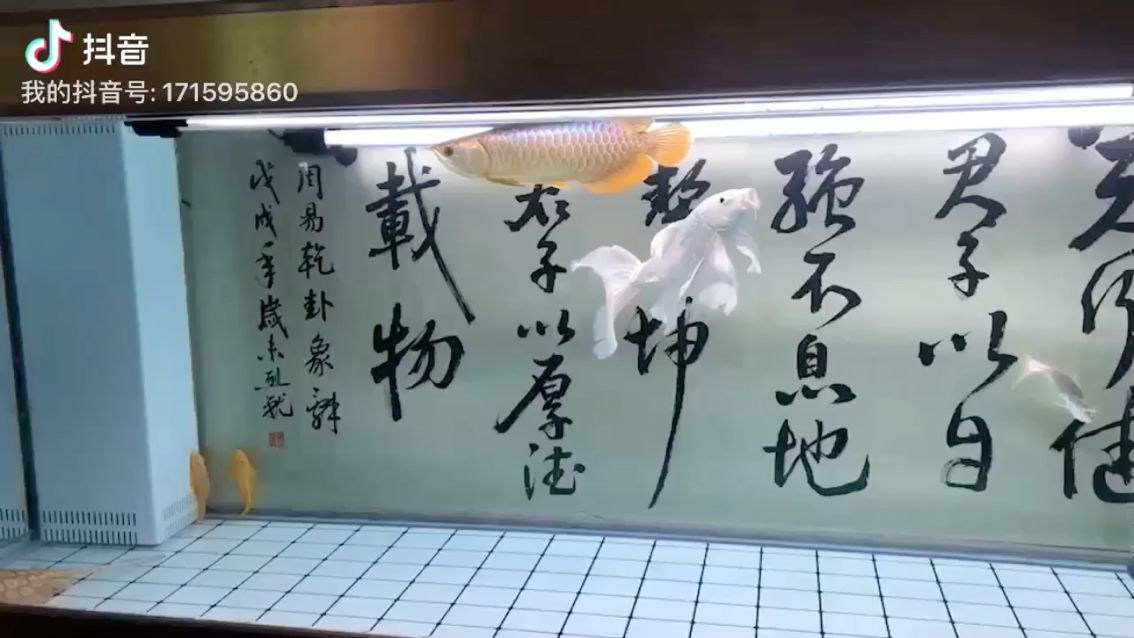 抖音
我的抖音号: 171595860
天行健
君子以自
强不息地
势坤
君子以厚德
載物
周易乾卦象辭
戊戌年歲末